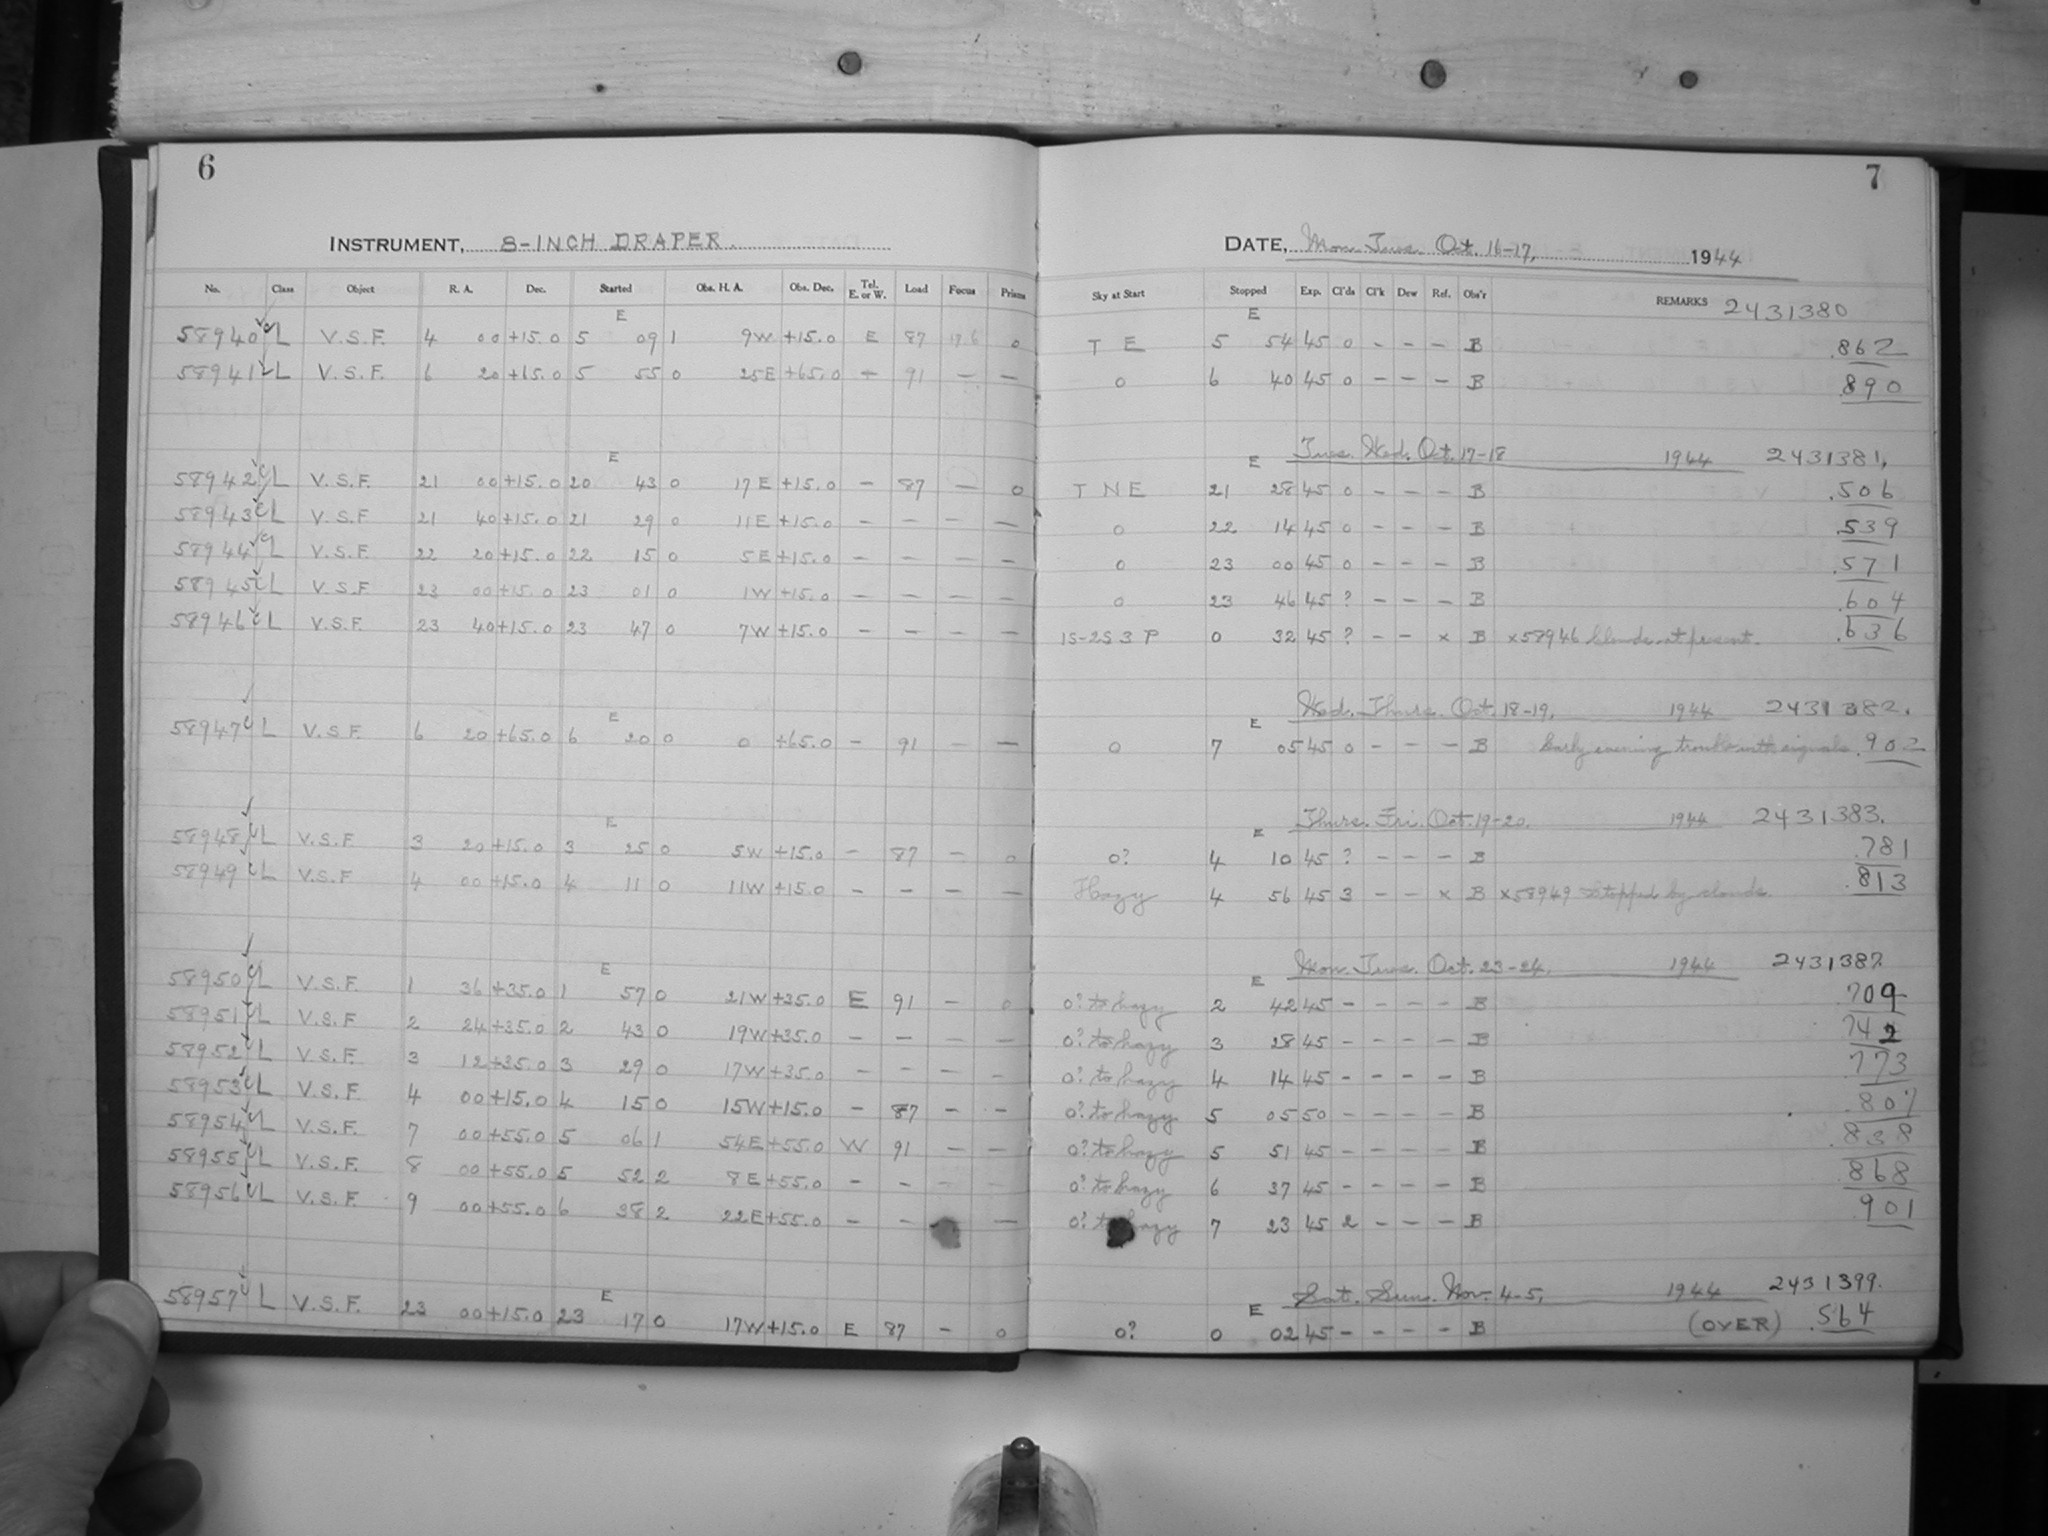 6
INSTRUMENT, 8-INCH DRAPER.
No. Class Object R. A. Dec. Started Obs. H. A. Obs. Dec. Tel. E. or W. Load Focus Prism
E
58940 L V.S.F. 4 00 +15.0 5 09 1 9W +15.0 E 87 17.6 0
58941 L V.S.F. 6 20 +65.0 5 55 0 25E +65.0 91 — —
E
58942 L V.S.F. 21 00 +15.0 20 43 0 17E +15.0 — 87 — 0
58943 L V.S.F 21 40 +15.0 21 29 0 11E +15.0 — — — —
58944 L V.S.F. 22 20 +15.0 22 15 0 5E +15.0 — — — —
58945 L V.S.F 23 00 +15.0 23 01 0 1W +15.0 — — — —
58946 L V.S.F. 23 40 +15.0 23 47 0 7W +15.0 — — — —
E
58947 L V.S.F. 6 20 +65.0 6 20 0 0 +65.0 — 91 — —
E
58948 L V.S.F 3 20 +15.0 3 25 0 5W +15.0 — 87 — 0
58949 L V.S.F 4 00 +15.0 4 11 0 11W +15.0 — — — —
E
58950 L V.S.F. 1 36 +35.0 1 57 0 21W +35.0 E 91 — 0
58951 L V.S.F 2 24 +35.0 2 43 0 19W +35.0 — — — —
58952 L V.S.F. 3 12 +35.0 3 29 0 17W +35.0 — — — —
58953 L V.S.F. 4 00 +15.0 4 15 0 15W +15.0 — 87 — —
58954 L V.S.F. 7 00 +55.0 5 06 1 54E +55.0 W 91 — —
58955 L V.S.F. 8 00 +55.0 5 52 2 8E +55.0 — — —
58956 L V.S.F. 9 00 +55.0 6 38 2 22E +55.0 — — —
E
58957 L V.S.F. 23 00 +15.0 23 17 0 17W +15.0 E 87 — 0
7
DATE, Mon. Tues. Oct. 16-17, 1944
Sky at Start Stopped Exp. Cl'ds Cl'k Dew Ref. Obs'r REMARKS 2431380
E
T E 5 54 45 0 — — — B .862
0 6 40 45 0 — — — B .890
E Tues. Wed. Oct. 17-18 1944 2431381.
T N E 21 28 45 0 — — — B .506
0 22 14 45 0 — — — B .539
0 23 00 45 0 — — — B .571
0 23 46 45 ? — — — B .604
1S-2S 3 P 0 32 45 ? — — x B x58946 Clouds at present. .636
E Wed. Thurs. Oct. 18-19, 1944 2431382.
0 7 05 45 0 — — — B Early evening trouble with signals .902
E Thurs. Fri. Oct. 19-20. 1944 2431383.
0? 4 10 45 ? — — — B .781
Hazy 4 56 45 3 — — x B x58949 Stopped by clouds. .813
E Mon. Tues. Oct. 23-24, 1944 2431387.
0? to hazy 2 42 45 — — — — B .709
0? to hazy 3 28 45 — — — — B .742
0? to hazy 4 14 45 — — — — B .773
0? to hazy 5 05 50 — — — — B .807
0? to hazy 5 51 45 — — — — B .838
0? to hazy 6 37 45 — — — — B .868
0? to hazy 7 23 45 2 — — — B .901
E Sat. Sun. Nov. 4-5, 1944 2431399.
0? 0 02 45 — — — — B (OVER) .564